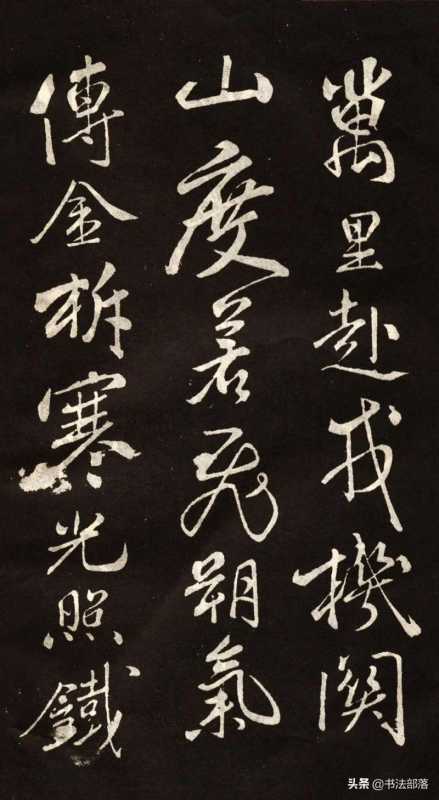 萬里赴戎機關
山度若飛朔氣
傳金柝寒光照鐵
头条 @书法部落